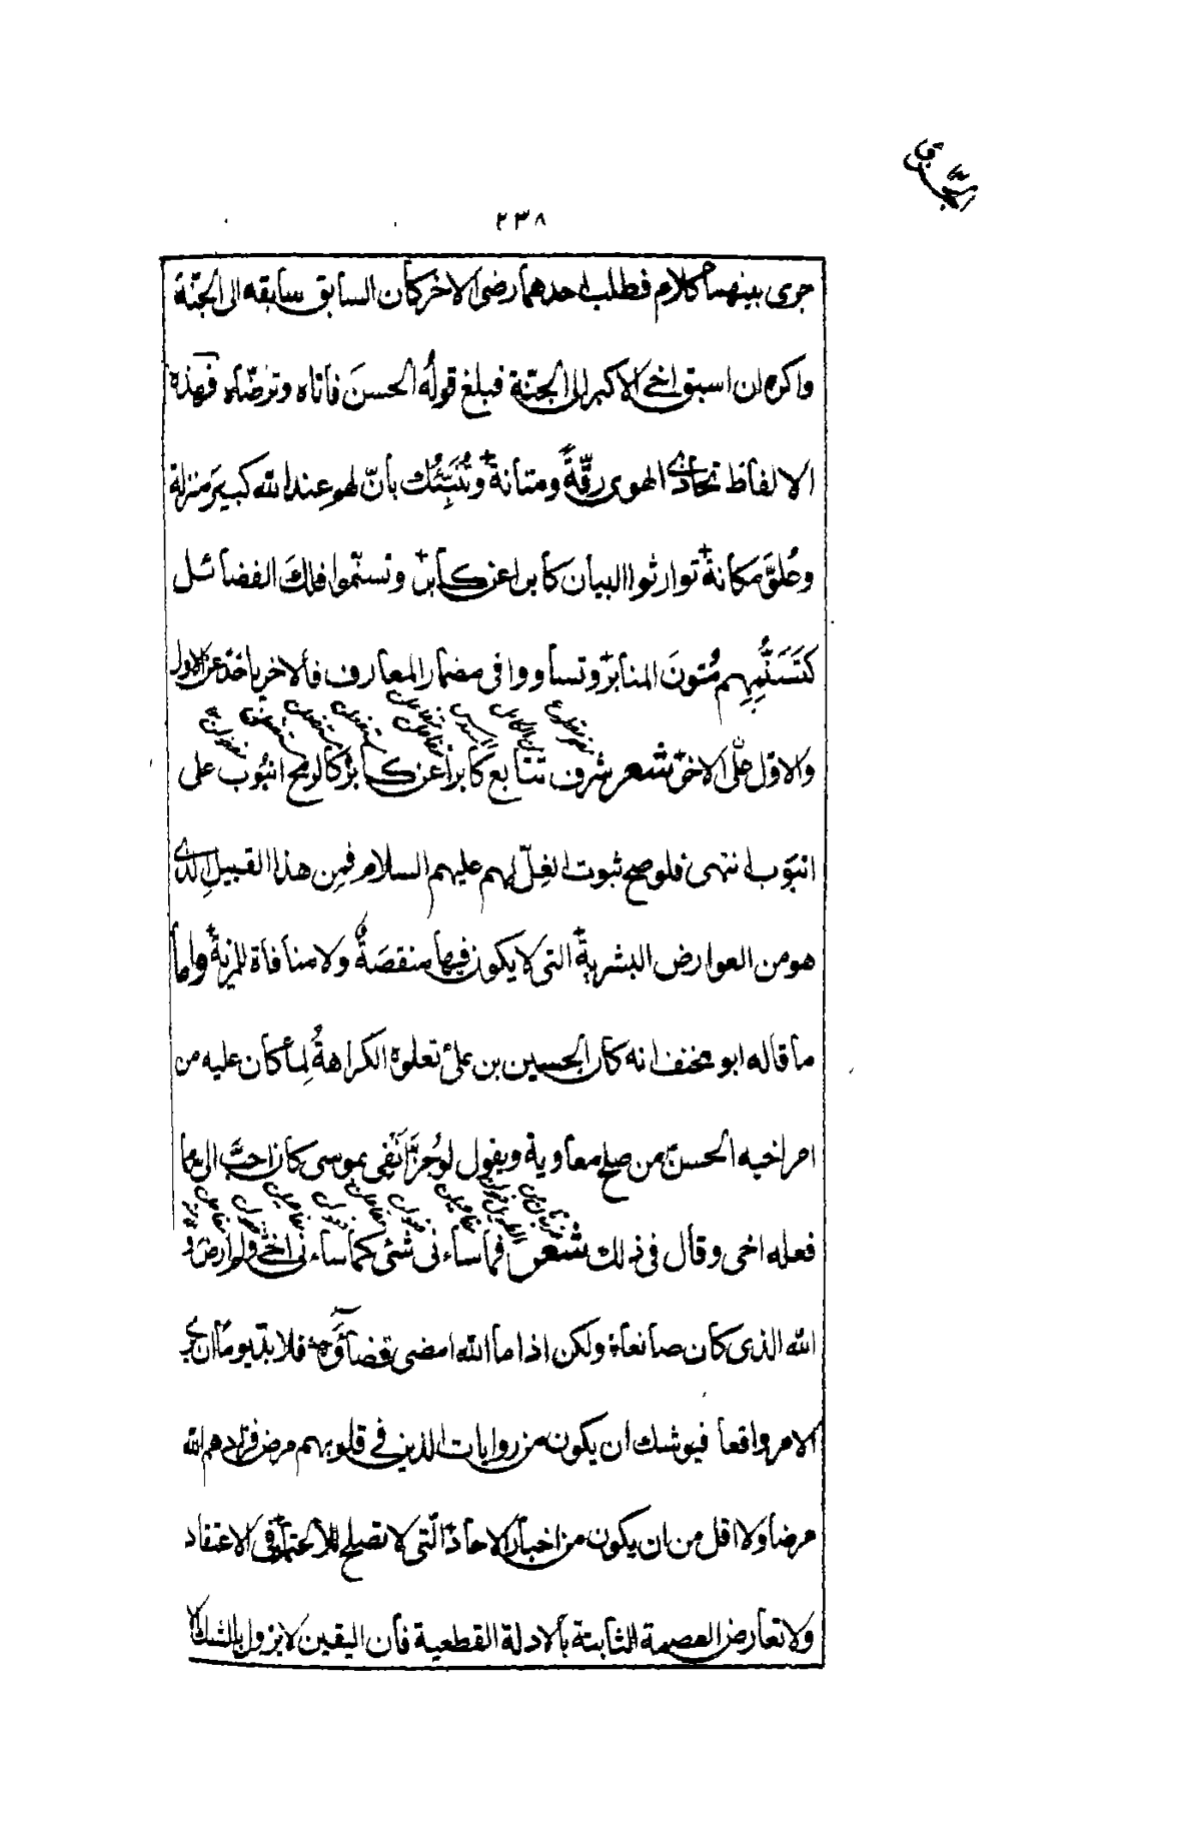 ٢٣٨
جرى بينهما كلام فطلب احدهما رضى الاخر كان السابق سابقه الى الجنّة
واكره ان اسبق اخى الاكبر الى الجنّة فبلغ قولُه الحسنَ فاتاه وترضّاه فهذه
الالفاظ تحاذى الهوى رقّةً ومتانة وتُنَبِّئُك بأنّ لهم عند الله كبيرَ منزلة
وعُلوَّ مكانة توارثوا البيان كابرا عن كابر وتسنّموا فلكَ الفضائل
كتَسَنُّمِهِم مُتونَ المنابر وتساووا فى مضمار المعارف فالاخر ياخذ عن الاول
والاول على الاخر شعر شرف تتابع كابرا عن كابر كالرمح انبُوب على
انبوب انتهى فلو صح ثبوت الغِلّ لهم عليهم السلام فمِن هذا القبيل الذى
هو من العوارض البشرية التى لا يكون فيها منقصَةٌ ولا منافاة للمزية واما
ما قاله ابو مخنف انه كان الحسين بن علىّ تعلوه الكراهةُ لِما كان عليه من
امر اخيه الحسن من صلح معاوية ويقول لو جُزَّ اَنفى بموسى كان احبَّ الى مما
فعله اخى وقال فى ذلك شعر فما ساءنى شئ كما ساءنى اخى ولم ارض و
الله الذى كان صانعا ولكن اذا ما الله امضى قضاؤه فلا بدّ يوما ان
الامر واقعا فيوشك ان يكون من روايات الذين فى قلوبهم مرض فزادهم الله
مرضا ولا اقل من ان يكون من اخبار الاحاد التى لا تصلح فى الاعتقاد
ولا تعارض العصمة الثابتة بالادلة القطعية فان اليقين لا يزول بالشك لا